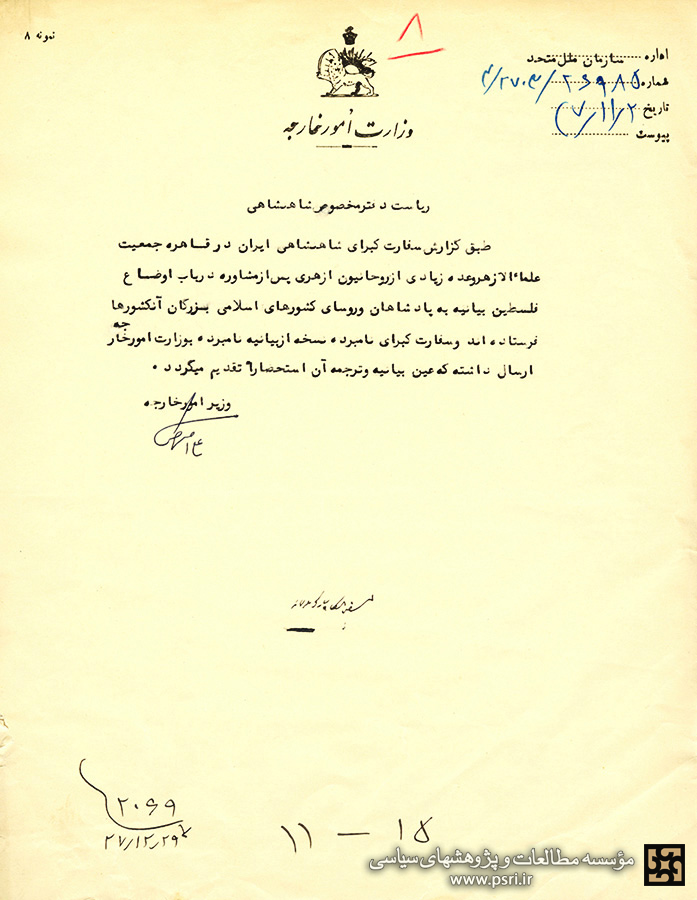 نمونه ۸
۸
اداره سازمان ملل متحد
شماره ۲۶۹۸۵/۲۷۰۳/۴
تاریخ ۲/۱۱/۲۷
پیوست
وزارت امور خارجه
ریاست دفتر مخصوص شاهنشاهی
طبق گزارش سفارت کبرای شاهنشاهی ایران در قاهره جمعیت
علماء الازهر و عده زیادی از روحانیون ازهری پس از مشاوره در باب اوضاع
فلسطین بیانیه به پادشاهان و روسای کشورهای اسلامی بزرگان آنکشورها
فرستاده اند و سفارت کبرای نامبرده نسخه از بیانیه نامبرده بوزارت امورخارجه
ارسال داشته که عین بیانیه و ترجمه آن استحضاراً تقدیم میگردد .
وزیر امورخارجه
۲۰۶۹
۲۷/۱۲/۲۹
۱۱ - ۱۵
مؤسسه مطالعات و پژوهشهای سیاسی
www.psri.ir